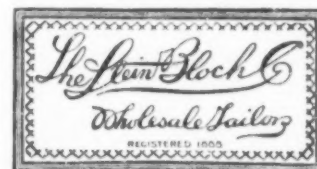 The Stein-Bloch Co
Wholesale Tailors
REGISTERED 1885